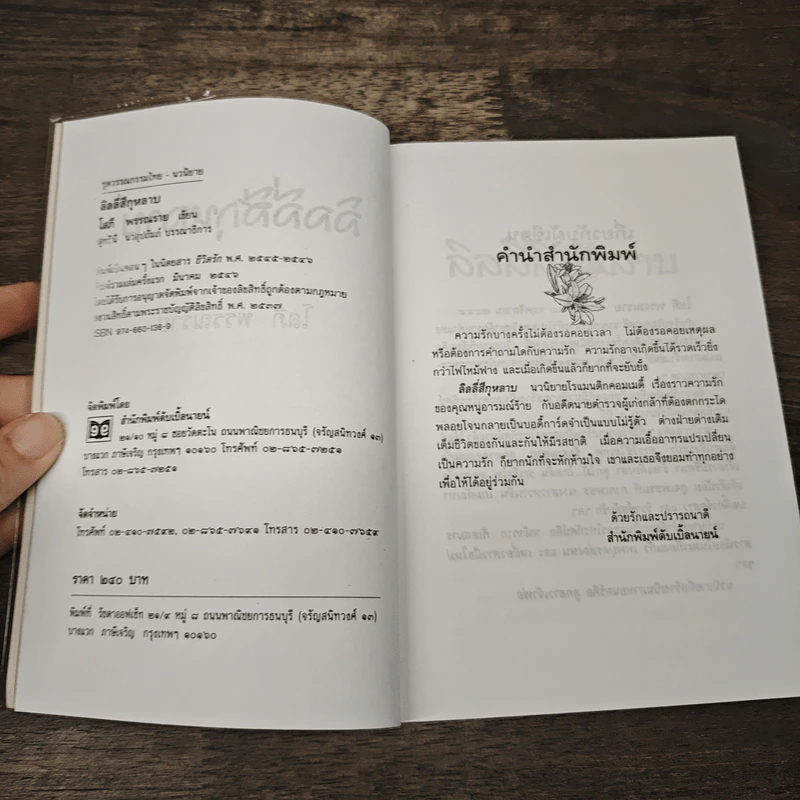 ชุดวรรณกรรมไทย - นวนิยาย
ลิลลี่สีกุหลาบ
โสภี พรรณราย เขียน
บรรณาธิการ
ในนิตยสาร ชีวิตรัก พ.ศ. ๒๕๔๕-๒๕๔๖
มีนาคม ๒๕๔๖
ได้รับการอนุญาตจัดพิมพ์จากเจ้าของลิขสิทธิ์ถูกต้องตามกฎหมาย
สงวนสิทธิ์ตามพระราชบัญญัติลิขสิทธิ์ พ.ศ. ๒๕๓๗
ISBN 974-660-136-9
จัดพิมพ์โดย
สำนักพิมพ์ดับเบิ้ลนายน์
๒๑/๑๐ หมู่ ๘ ซอยวัดตะโน ถนนพาณิชยการธนบุรี (จรัญสนิทวงศ์ ๑๓)
บางแวก ภาษีเจริญ กรุงเทพฯ ๑๐๑๖๐ โทรศัพท์ ๐๒-๘๖๕-๗๒๕๑
โทรสาร ๐๒-๘๖๕-๗๒๕๑
จัดจำหน่าย
โทรศัพท์ ๐๒-๔๑๐-๗๕๔๒, ๐๒-๘๖๕-๗๖๙๑ โทรสาร ๐๒-๔๑๐-๗๖๕๙
ราคา ๒๔๐ บาท
พิมพ์ที่ รัชดาออฟเซ็ท ๒๑/๙ หมู่ ๘ ถนนพาณิชยการธนบุรี (จรัญสนิทวงศ์ ๑๓)
บางแวก ภาษีเจริญ กรุงเทพฯ ๑๐๑๖๐
คำนำสำนักพิมพ์
ความรักบางครั้งไม่ต้องรอคอยเวลา ไม่ต้องรอคอยเหตุผล
หรือต้องการคำถามใดกับความรัก ความรักอาจเกิดขึ้นได้รวดเร็วยิ่ง
กว่าไฟไหม้ฟาง และเมื่อเกิดขึ้นแล้วก็ยากที่จะยับยั้ง
ลิลลี่สีกุหลาบ นวนิยายโรแมนติกคอมเมดี้ เรื่องราวความรัก
ของคุณหนูอารมณ์ร้าย กับอดีตนายตำรวจผู้เก่งกล้าที่ต้องตกกระได
พลอยโจนกลายเป็นบอดี้การ์ดจำเป็นแบบไม่รู้ตัว ต่างฝ่ายต่างเติม
เต็มชีวิตของกันและกันให้มีรสชาติ เมื่อความเอื้ออาทรแปรเปลี่ยน
เป็นความรัก ก็ยากนักที่จะหักห้ามใจ เขาและเธอจึงยอมทำทุกอย่าง
เพื่อให้ได้อยู่ร่วมกัน
ด้วยรักและปรารถนาดี
สำนักพิมพ์ดับเบิ้ลนายน์